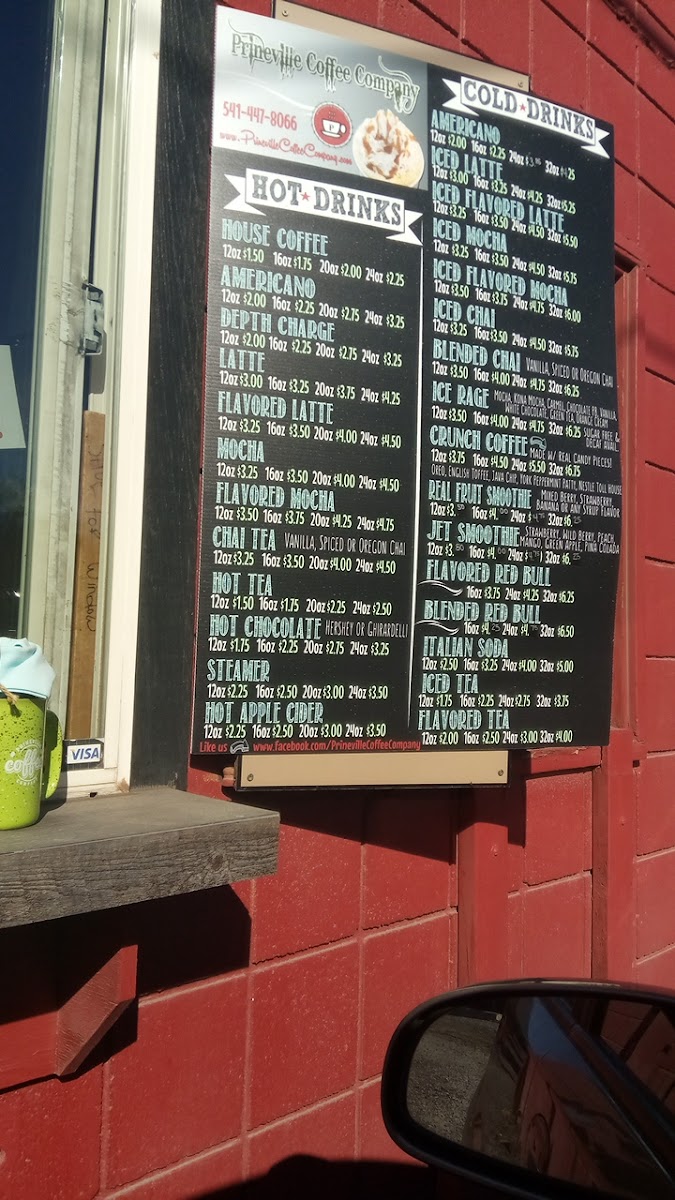 Prineville Coffee Company
541-447-8066
www.PrinevilleCoffeeCompany.com
HOT DRINKS
HOUSE COFFEE
12oz $1.50 16oz $1.75 20oz $2.00 24oz $2.25
AMERICANO
12oz $2.00 16oz $2.25 20oz $2.75 24oz $3.25
DEPTH CHARGE
12oz $2.00 16oz $2.25 20oz $2.75 24oz $3.25
LATTE
12oz $3.00 16oz $3.25 20oz $3.75 24oz $4.25
FLAVORED LATTE
12oz $3.25 16oz $3.50 20oz $4.00 24oz $4.50
MOCHA
12oz $3.25 16oz $3.50 20oz $4.00 24oz $4.50
FLAVORED MOCHA
12oz $3.50 16oz $3.75 20oz $4.25 24oz $4.75
CHAI TEA VANILLA, SPICED OR OREGON CHAI
12oz $3.25 16oz $3.50 20oz $4.00 24oz $4.50
HOT TEA
12oz $1.50 16oz $1.75 20oz $2.25 24oz $2.50
HOT CHOCOLATE HERSHEY OR GHIRARDELLI
12oz $1.75 16oz $2.25 20oz $2.75 24oz $3.25
STEAMER
12oz $2.25 16oz $2.50 20oz $3.00 24oz $3.50
HOT APPLE CIDER
12oz $2.25 16oz $2.50 20oz $3.00 24oz $3.50
Like us www.facebook.com/PrinevilleCoffeeCompany
COLD DRINKS
AMERICANO
12oz $2.00 16oz $2.25 24oz 32oz
ICED LATTE
12oz $3.00 16oz $3.25 24oz $4.25 32oz $5.25
ICED FLAVORED LATTE
12oz $3.25 16oz $3.50 24oz $4.50 32oz $5.50
ICED MOCHA
12oz $3.25 16oz $3.50 24oz $4.50 32oz $5.75
ICED FLAVORED MOCHA
12oz $3.50 16oz $3.75 24oz $4.75 32oz $6.00
ICED CHAI
12oz $3.25 16oz $3.50 24oz $4.50 32oz $5.75
BLENDED CHAI VANILLA, SPICED OR OREGON CHAI
12oz $3.50 16oz $4.00 24oz $4.75 32oz $6.25
ICE RAGE MOCHA, KONA MOCHA, CARMEL, CHOCOLATE PB, VANILLA,
WHITE CHOCOLATE, GREEN TEA, ORANGE CREAM
12oz $3.50 16oz $4.00 24oz $4.75 32oz $6.25 SUGAR FREE &
DECAF AVAIL.
CRUNCH COFFEE MADE W/ REAL CANDY PIECES!
12oz $3.75 16oz $4.50 24oz $5.50 32oz $6.75
OREO, ENGLISH TOFFEE, JAVA CHIP, YORK PEPPERMINT PATTY, NESTLE TOLL HOUSE
REAL FRUIT SMOOTHIE MIXED BERRY, STRAWBERRY,
BANANA OR ANY SYRUP FLAVOR
12oz $3. 16oz $4. 24oz 32oz $6.
JET SMOOTHIE STRAWBERRY, WILD BERRY, PEACH,
MANGO, GREEN APPLE, PINA COLADA
12oz $3. 16oz $4. 24oz 32oz $6.
FLAVORED RED BULL
16oz $3.75 24oz $4.25 32oz $6.25
BLENDED RED BULL
16oz $4.25 24oz $4. 32oz $6.50
ITALIAN SODA
12oz $2.50 16oz $3.25 24oz $4.00 32oz $5.00
ICED TEA
12oz $1.75 16oz $2.25 24oz $2.75 32oz $3.75
FLAVORED TEA
12oz $2.00 16oz $2.50 24oz $3.00 32oz $4.00
for window
VISA
coffee